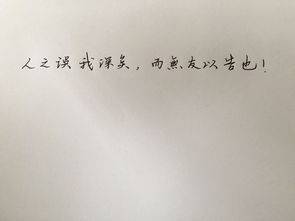 人之误我深矣，而無友以告也！